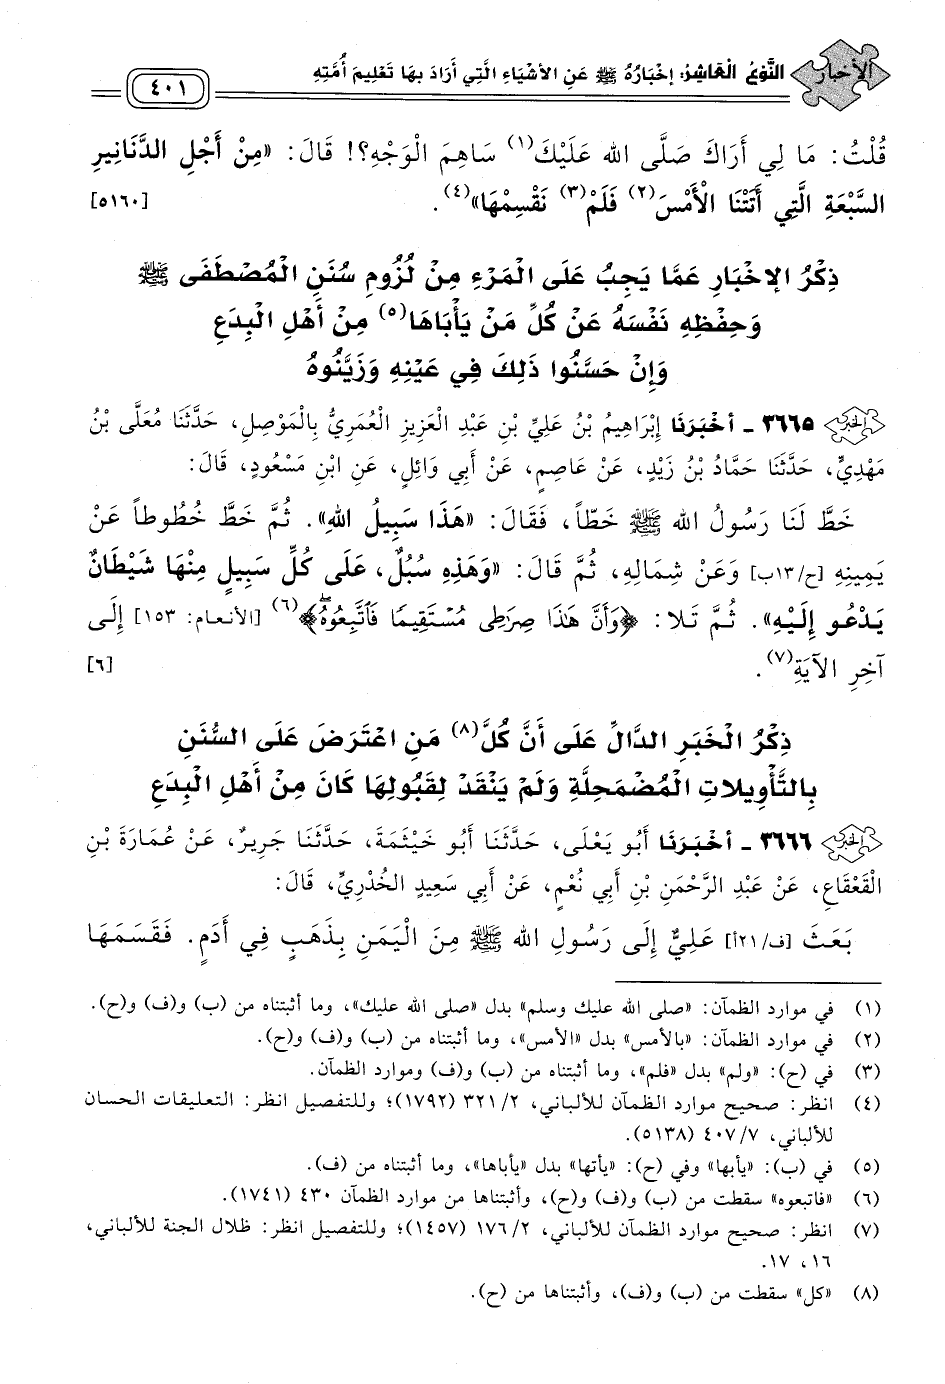 الأخبار النَّوْعُ الْعَاشِرُ: إِخْبَارُهُ ﷺ عَنِ الأَشْيَاءِ الَّتِي أَرَادَ بِهَا تَعْلِيمَ أُمَّتِهِ ٤٠١
قُلْتُ: مَا لِي أَرَاكَ صَلَّى الله عَلَيْكَ(١) سَاهِمَ الْوَجْهِ؟! قَالَ: «مِنْ أَجْلِ الدَّنَانِيرِ
السَّبْعَةِ الَّتِي أَتَتْنَا الْأَمْسَ(٢) فَلَمْ(٣) نَقْسِمْهَا»(٤). [٥١٦٠]
ذِكْرُ الإِخْبَارِ عَمَّا يَجِبُ عَلَى الْمَرْءِ مِنْ لُزُومِ سُنَنِ الْمُصْطَفَى ﷺ
وَحِفْظِهِ نَفْسَهُ عَنْ كُلِّ مَنْ يَأْبَاهَا(٥) مِنْ أَهْلِ الْبِدَعِ
وَإِنْ حَسَّنُوا ذَلِكَ فِي عَيْنِهِ وَزَيَّنُوهُ
٣٦٦٥ ـ أَخْبَرَنَا إِبْرَاهِيمُ بْنُ عَلِيِّ بْنِ عَبْدِ الْعَزِيزِ الْعُمَرِيُّ بِالْمَوْصِلِ، حَدَّثَنَا مُعَلَّى بْنُ
مَهْدِيٍّ، حَدَّثَنَا حَمَّادُ بْنُ زَيْدٍ، عَنْ عَاصِمٍ، عَنْ أَبِي وَائِلٍ، عَنِ ابْنِ مَسْعُودٍ، قَالَ:
خَطَّ لَنَا رَسُولُ الله ﷺ خَطّاً، فَقَالَ: «هَذَا سَبِيلُ اللهِ». ثُمَّ خَطَّ خُطُوطاً عَنْ
يَمِينِهِ [ح/١٣ب] وَعَنْ شِمَالِهِ، ثُمَّ قَالَ: «وَهَذِهِ سُبُلٌ، عَلَى كُلِّ سَبِيلٍ مِنْهَا شَيْطَانٌ
يَدْعُو إِلَيْهِ». ثُمَّ تَلَا: ﴿وَأَنَّ هَٰذَا صِرَٰطِى مُسْتَقِيمًا فَٱتَّبِعُوهُۖ﴾(٦) [الأنعام: ١٥٣] إِلَى
آخِرِ الآيَةِ(٧). [٦]
ذِكْرُ الْخَبَرِ الدَّالِّ عَلَى أَنَّ كُلَّ(٨) مَنِ اعْتَرَضَ عَلَى السُّنَنِ
بِالتَّأْوِيلاتِ الْمُضْمَحِلَّةِ وَلَمْ يَنْقَدْ لِقَبُولِهَا كَانَ مِنْ أَهْلِ الْبِدَعِ
٣٦٦٦ ـ أَخْبَرَنَا أَبُو يَعْلَى، حَدَّثَنَا أَبُو خَيْثَمَةَ، حَدَّثَنَا جَرِيرٌ، عَنْ عُمَارَةَ بْنِ
الْقَعْقَاعِ، عَنْ عَبْدِ الرَّحْمَنِ بْنِ أَبِي نُعْمٍ، عَنْ أَبِي سَعِيدٍ الْخُدْرِيِّ، قَالَ:
بَعَثَ [ف/٢١أ] عَلِيٌّ إِلَى رَسُولِ الله ﷺ مِنَ الْيَمَنِ بِذَهَبٍ فِي أَدَمٍ. فَقَسَمَهَا
(١) في موارد الظمآن: «صلى الله عليك وسلم» بدل «صلى الله عليك»، وما أثبتناه من (ب) و(ف) و(ح).
(٢) في موارد الظمآن: «بالأمس» بدل «الأمس»، وما أثبتناه من (ب) و(ف) و(ح).
(٣) في (ح): «ولم» بدل «فلم»، وما أثبتناه من (ب) و(ف) وموارد الظمآن.
(٤) انظر: صحيح موارد الظمآن للألباني، ٢/ ٣٢١ (١٧٩٢)؛ وللتفصيل انظر: التعليقات الحسان
للألباني، ٧/ ٤٠٧ (٥١٣٨).
(٥) في (ب): «يأبها» وفي (ح): «يأتها» بدل «يأباها»، وما أثبتناه من (ف).
(٦) «فاتبعوه» سقطت من (ب) و(ف) و(ح)، وأثبتناها من موارد الظمآن ٤٣٠ (١٧٤١).
(٧) انظر: صحيح موارد الظمآن للألباني، ٢/ ١٧٦ (١٤٥٧)؛ وللتفصيل انظر: ظلال الجنة للألباني،
١٦، ١٧.
(٨) «كل» سقطت من (ب) و(ف)، وأثبتناها من (ح).